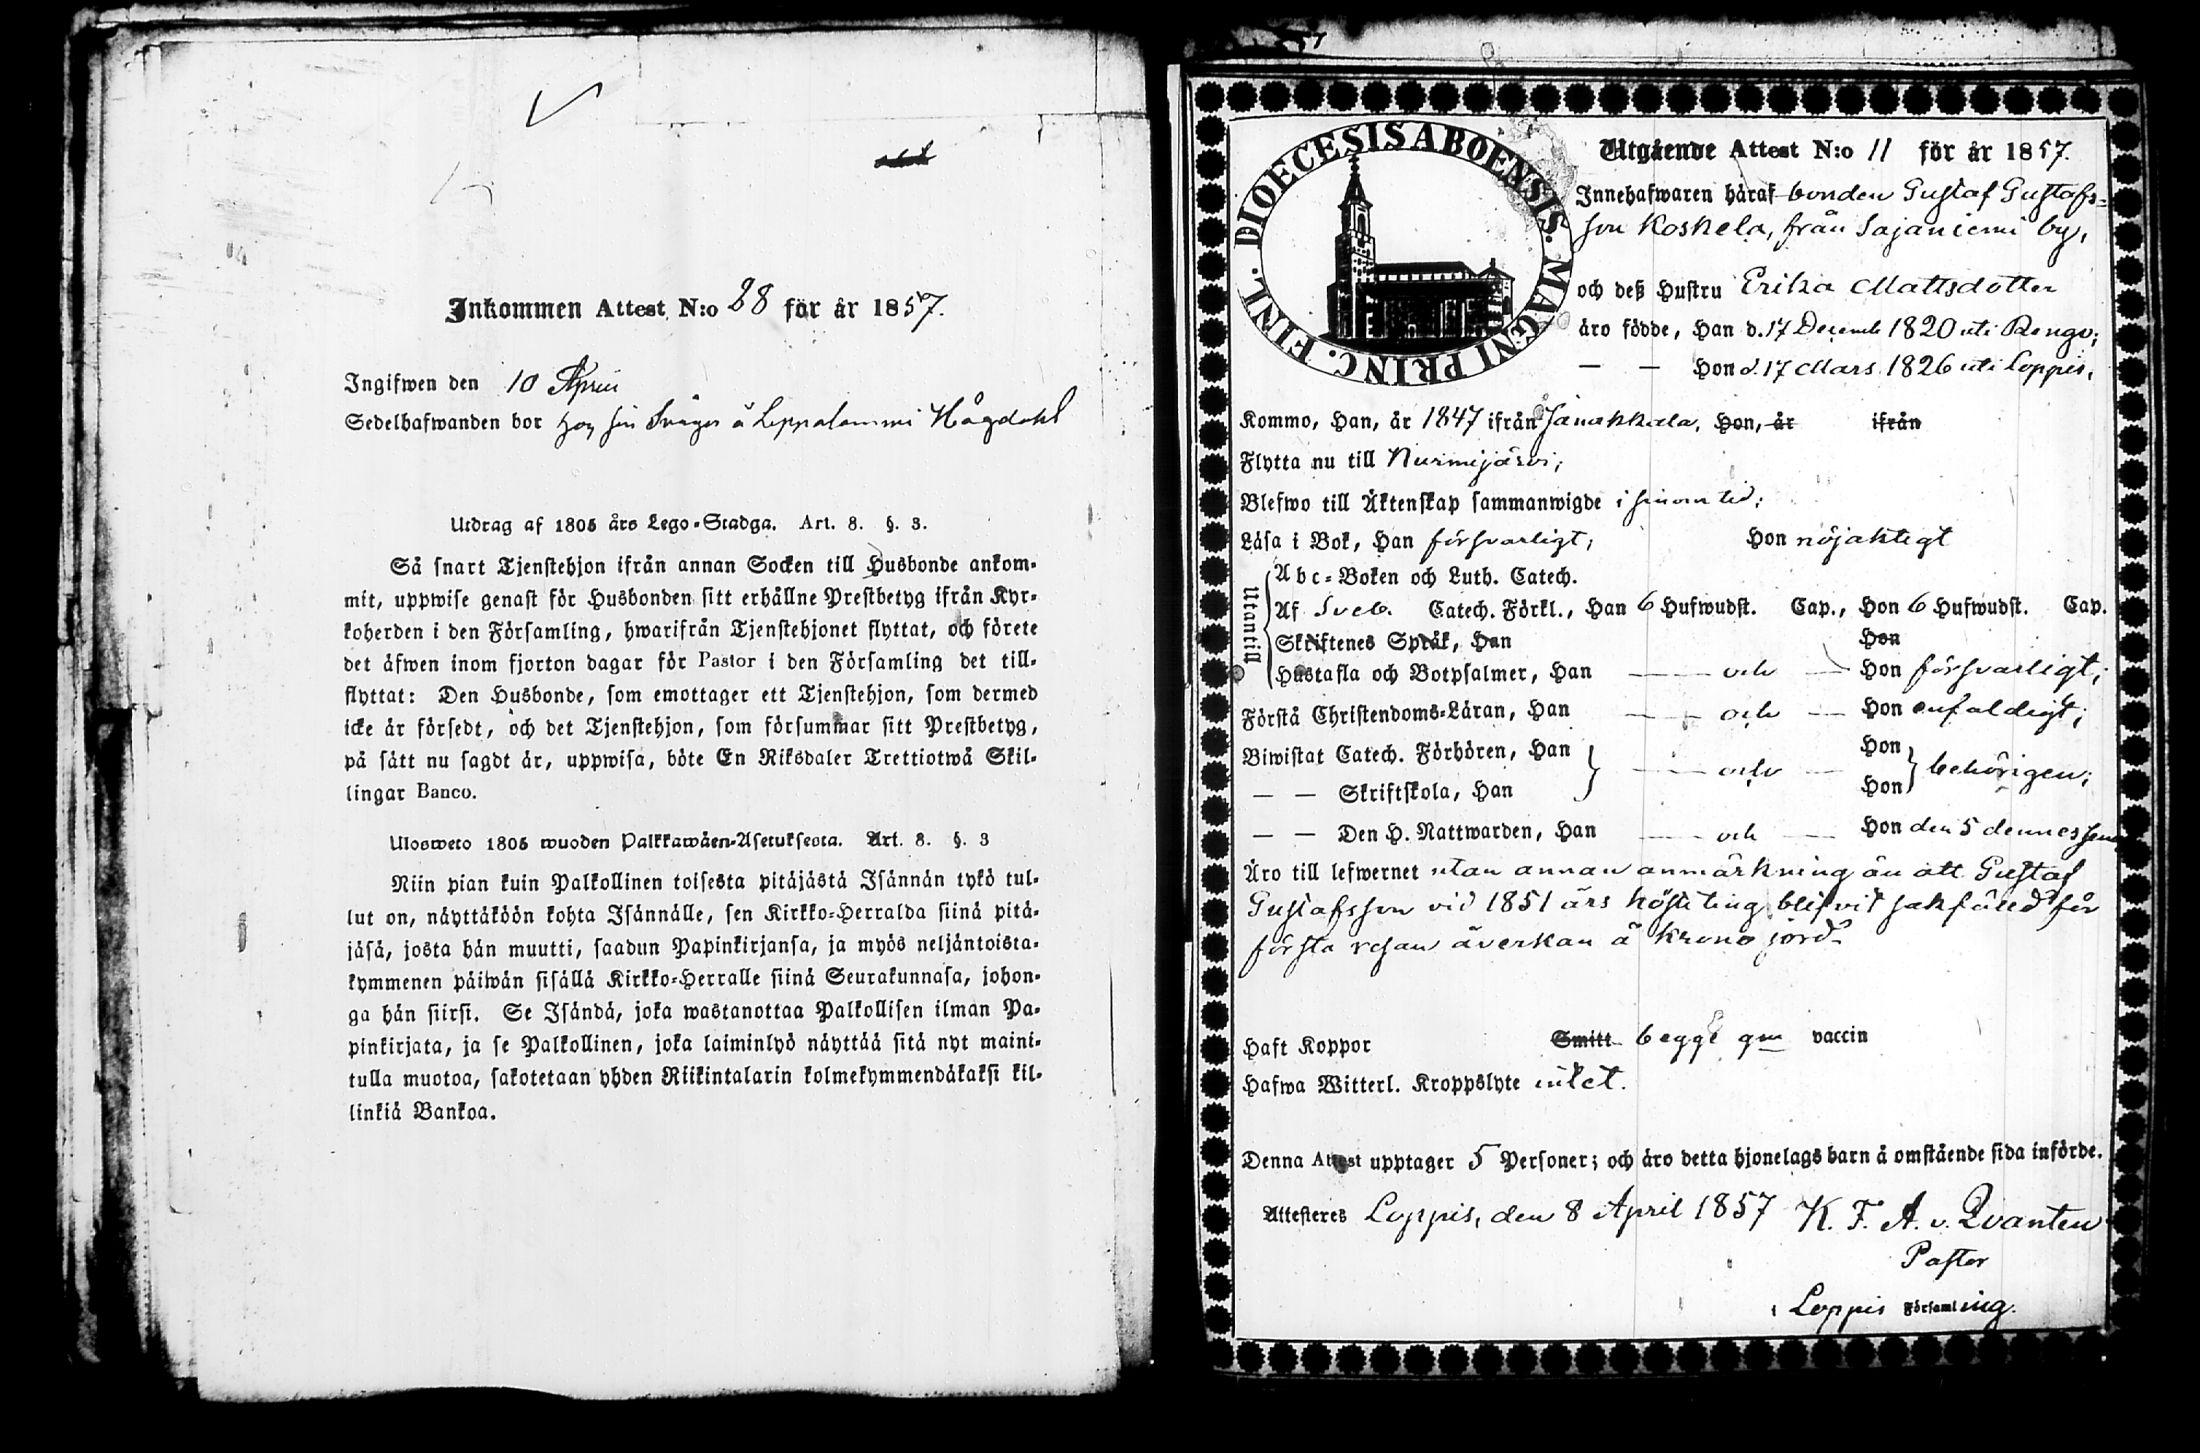 Inkommen Attest N:o 28 för år 1857.
Ingifwen den 10 April
Sedelhafwanden bor hos sin Svåger å Leppälammi Högdahl
Utdrag af 1805 års Lego-Stadga. Art. 8. §. 3.
Så snart Tjenstehjon ifrån annan Socken till Husbonde ankom-
mit, uppwise genast för Husbonden sitt erhållne Prestbetyg ifrån Kyr-
koherden i den Församling, hwarifrån Tjenstehjonet flyttat, och förete
det äfwen inom fjorton dagar för Pastor i den Församling det till-
flyttat: Den Husbonde, som emottager ett Tjenstehjon, som dermed
icke är försedt, och det Tjenstehjon, som försummar sitt Prestbetyg,
på sätt nu sagdt är, uppwisa, böte En Riksdaler Trettiotwå Skil-
lingar Banco.
Ulosweto 1805 wuoden Palkkawäen-Asetuksesta. Art. 8. §. 3
Niin pian kuin Palkollinen toisesta pitäjästä Isännän tykö tul-
lut on, näyttäköön kohta Isännälle, sen Kirkko-Herralda siinä pitä-
jäsä, josta hän muutti, saadun Papinkirjansa, ja myös neljäntoista-
kymmenen päiwän sisällä Kirkko-Herralle siinä Seurakunnasa, johon-
ga hän siirsi. Se Isändä, joka wastanottaa Palkollisen ilman Pa-
pinkirjata, ja se Palkollinen, joka laiminlyö näyttää sitä nyt maini-
tulla muotoa, sakotetaan yhden Riikintalarin kolmekymmendäkaksi kil-
linkiä Bankoa.
DIOECESIS ABOENSIS. MAGNI PRINC. FINL.
Utgående Attest N:o 11 för år 1857.
Innehafwaren häraf bonden Gustaf Gustafs=
son Koskela, från Sajaniemi by,
och deß Hustru Erika Mattsdotter
äro födde, Han d. 17 Decemb 1820 uti Rengo;
— — Hon d. 17 Mars 1826 uti Loppis,
Kommo, Han, år 1847 ifrån Janakkala, Hon, år ifrån
Flytta nu till Nurmijärvi;
Blefwo till Äktenskap sammanwigde i sinom tid;
Läsa i Bok, Han försvarligt; Hon nöjaktigt
Utantill
Abc-Boken och Luth. Catech.
Af Sveb. Catech. Förkl., Han 6 Hufwudst. Cap., Hon 6 Hufwudst. Cap.
Skriftenes Språk, Han Hon
Hustafla och Botpsalmer, Han — — och — Hon försvarligt;
Förstå Christendoms-Läran, Han — — och — Hon enfaldigt;
Biwistat Catech. Förhören, Han — — och — Hon behörigen;
— — Skriftskola, Han Hon
— — Den H. Nattwarden, Han — och — Hon den 5 dennes
Äro till lefwernet utan annan anmärkning än att Gustaf
Gustafsson vid 1851 års hösteting blifvit sakfälld för
första resan åverkan å krono jord.
Haft Koppor Smitt begge vaccin
Hafwa Witterl. Kroppslyte intet.
Denna Attest upptager 5 Personer; och äro detta hjonelags barn å omstående sida införde.
Attesteres Loppis, den 8 April 1857 K. F. A. v. Qvanten
Pastor
i Loppis Församling.